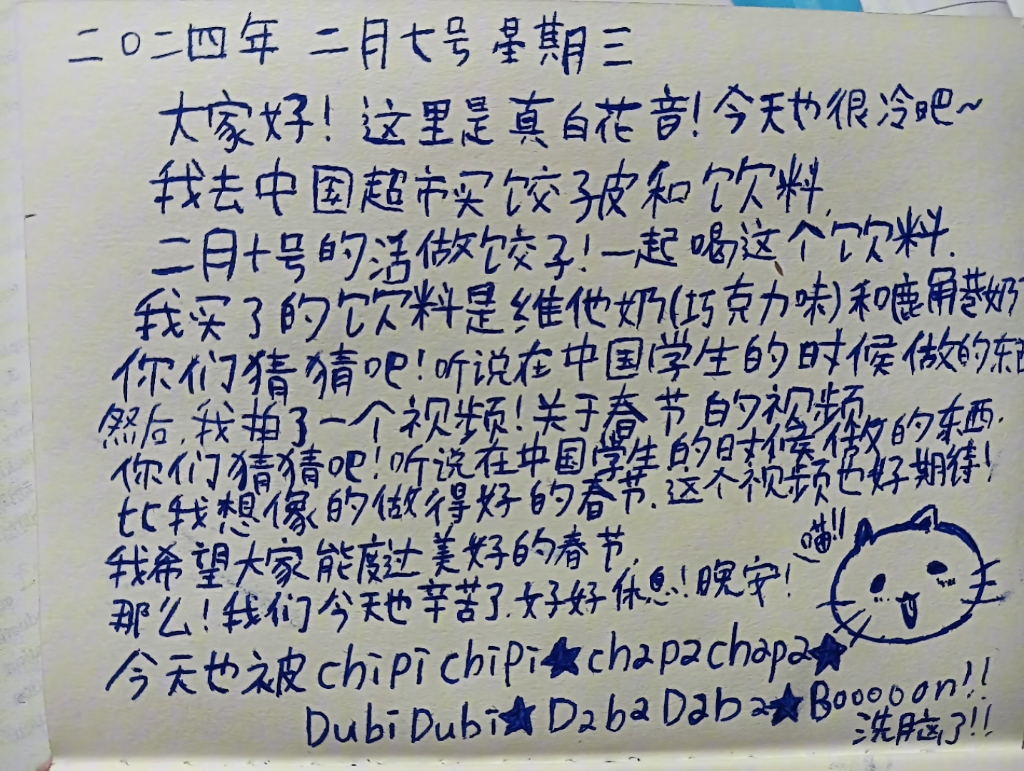 二〇二四年 二月七号 星期三
大家好！这里是真白花音！今天也很冷吧~
我去中国超市买饺子皮和饮料,
二月十号的活做饺子！一起喝这个饮料.
我买了的饮料是維他奶(巧克力味)和鹿角巷奶
你们猜猜吧！听说在中国学生的时候做的东
然后,我拍了一个视频！关于春节的视频
你们猜猜吧！听说在中国学生的时候做的东西.
比我想像的做得好的春节.这个视频也好期待！
我希望大家能度过美好的春节,
喵!!
那么！我们今天也辛苦了.好好休息！晚安！
今天也被chipichipi★chapachapa★
DubiDubi★DabaDaba★Booooon!!
洗脑了!!